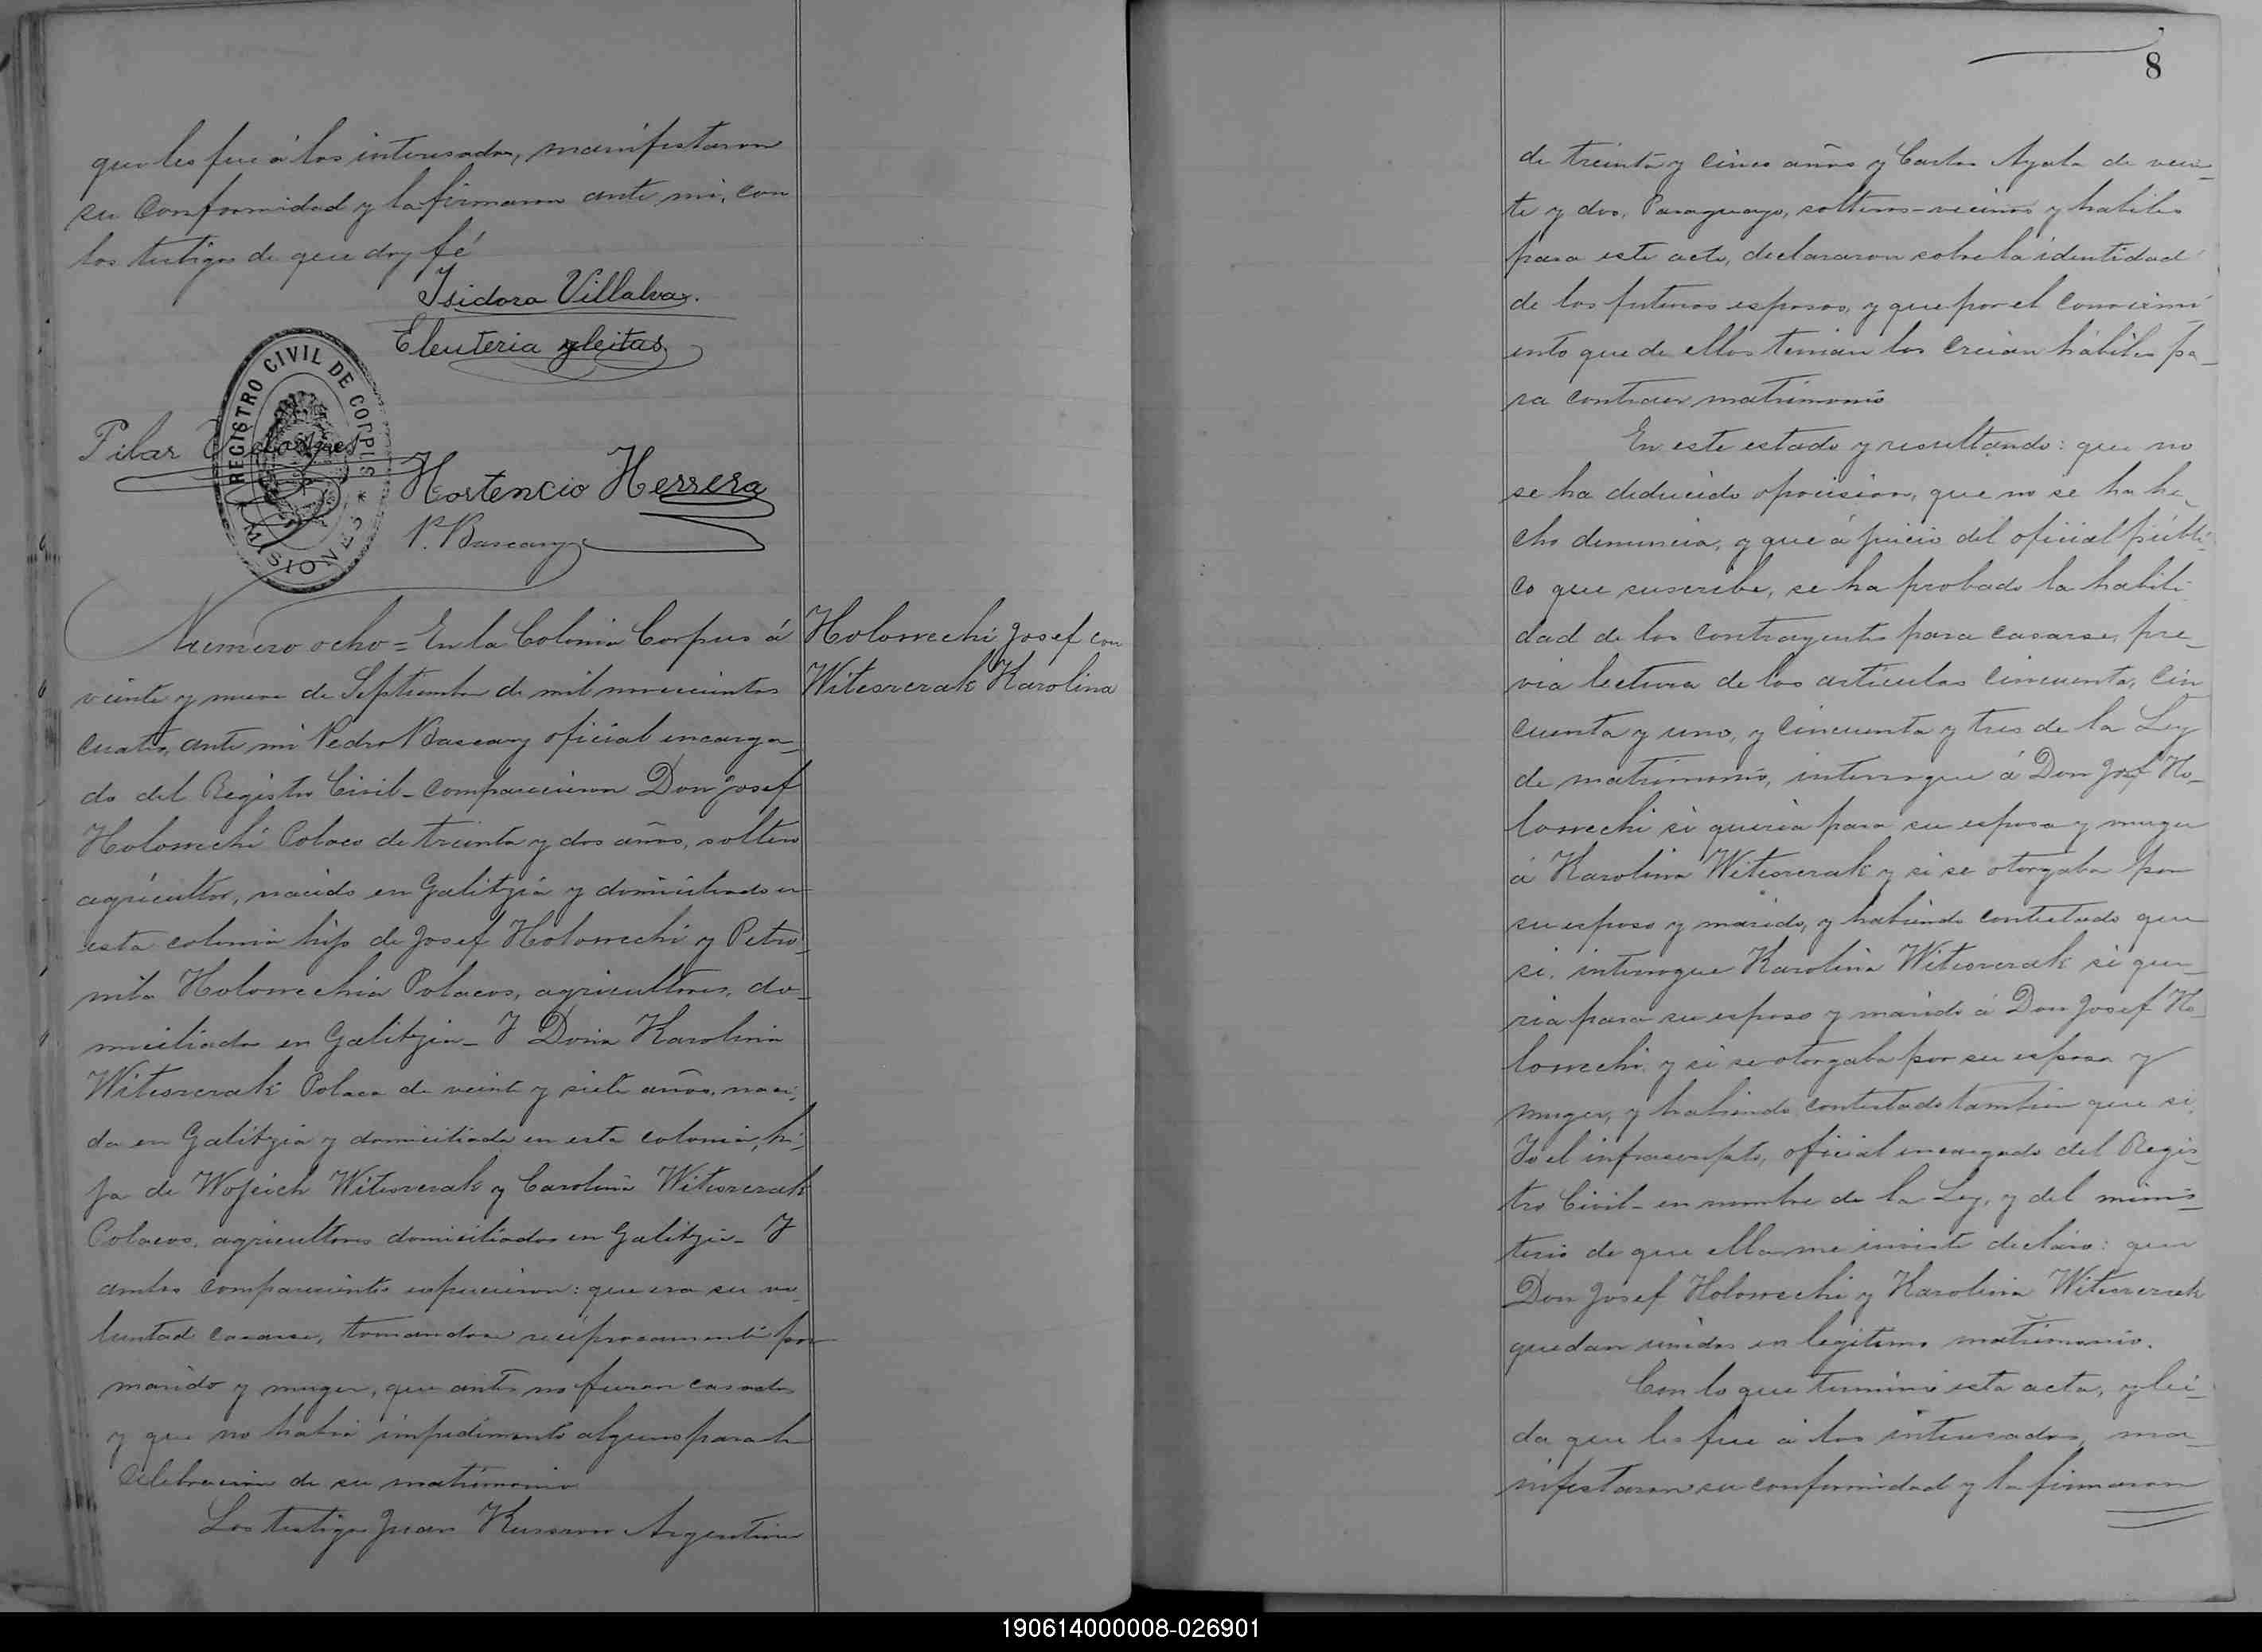 que les fué á los interesados, manifestaron
su conformidad y la firmaron ante mi, con
los testigos de que doy fé
Isidora Villalva.
Eleuteria yleitas
REGISTRO CIVIL DE CORPUS
* MISIONES *
Pilar
Hortencio Herrera
P. Bascary
Numero ocho = En la Colonia Corpus á
veinte y nueve de Septiembre de mil novecientos
cuatro, ante mi Pedro Bascary oficial encarga_
do del Registro Civil_ comparecieron Don Josef
Holowechi Polaco de treinta y dos años, soltero
agricultor, nacido en Galitzia y domiciliado en
esta colonia hijo de Josef Holowechi y Petro_
nila Holowechia Polacos, agricultores, do_
miciliados en Galitzia_ Y Doña Karolina
Witeszczak Polaca de veinte y siete años, naci_
da en Galitzia y domiciliada en esta colonia, hi_
ja de Wojeich Witeszczak y Carolina Witeszczak
Polacos, agricultores domiciliados en Galitzia_ Y
ambos comparecientes expusieron: que era su vo_
luntad casarse, tomandose reciprocamente por
marido y muger, que antes no fueron casados
y que no habia impedimento alguno para la
celebracion de su matrimonio
Los testigos Juan Argentino
Holowechi Josef con
Witeszczak Karolina
8
de treinta y cinco años y Carlos Ayala de vein_
te y dos, Paraguayo, solteros-vecinos y habiles
para este acto, declararon sobre la identidad
de los futuros esposos, y que por el conocimi_
ento que de ellos tenian los creian hábiles pa_
ra contraer matrimonio
En este estado y resultando: que no
se ha deducido oposision, que no se ha he_
cho denuncia, y que á juicio del oficial públi_
co que suscribe, se ha probado la habili_
dad de los contrayentes para casarse, pre_
via lectura de los articulos cincuenta, cin
cuenta y uno, y cincuenta y tres de la Ley
de matrimonio, interrogue á Don Josef Ho_
lowechi si queria para su esposa y muger
á Karolina Witeszczak y si se otorgaba por
su esposo y marido, y habiendo contestado que
si, interrogue Karolina Witeszczak si que_
ria para su esposo y marido á Don Josef Ho_
lowechi y si se otorgaba por su esposa y
muger, y habiendo contestado tambien que si,
Yo el infrascripto, oficial encargado del Regis_
tro Civil_ en nombre de la Ley, y del minis_
terio de que ella me inviste declaro: que
Don Josef Holowechi y Karolina Witeszczak
quedan unidos en legitimo matrimonio.
Con lo que termino esta acta, y lei_
da que les fue á los interesados, ma_
nifestaron su conformidad y la firmaron
190614000008-026901